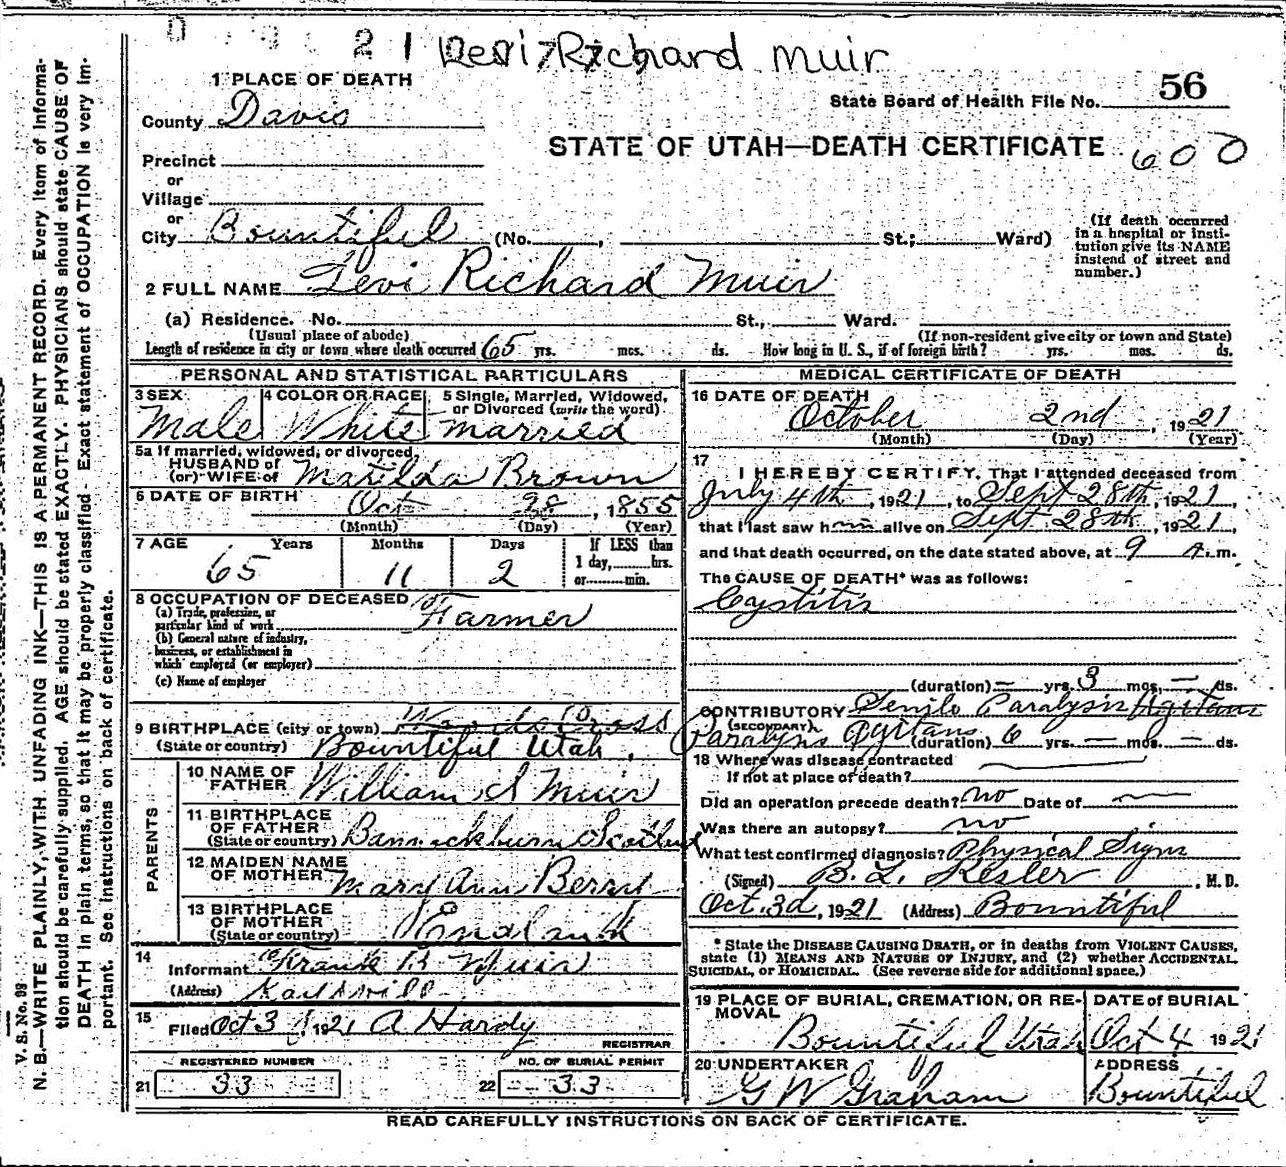 21 Levi Richard Muir
1 PLACE OF DEATH
State Board of Health File No. 56
County Davis
STATE OF UTAH—DEATH CERTIFICATE 600
Precinct
or
Village
or
City Bountiful (No. , St.; Ward)
(If death occurred in a hospital or institution give its NAME instead of street and number.)
2 FULL NAME Levi Richard Muir
(a) Residence. No. St., Ward.
(Usual place of abode) (If non-resident give city or town and State)
Length of residence in city or town where death occurred 65 yrs. mos. ds. How long in U. S., if of foreign birth? yrs. mos. ds.
PERSONAL AND STATISTICAL PARTICULARS
3 SEX 4 COLOR OR RACE 5 Single, Married, Widowed, or Divorced (write the word)
Male White married
5a If married, widowed, or divorced,
HUSBAND of
(or) WIFE of Matilda Brown
6 DATE OF BIRTH Oct 28, 1855
(Month) (Day) (Year)
7 AGE Years Months Days If LESS than
1 day, hrs.
or min.
65 11 2
8 OCCUPATION OF DECEASED
(a) Trade, profession, or
particular kind of work Farmer
(b) General nature of industry,
business, or establishment in
which employed (or employer)
(c) Name of employer
9 BIRTHPLACE (city or town) Woods Cross
(State or country) Bountiful Utah.
PARENTS
10 NAME OF
FATHER William S Muir
11 BIRTHPLACE
OF FATHER
(State or country) Bannockburn Scotland
12 MAIDEN NAME
OF MOTHER Mary Ann Berry
13 BIRTHPLACE
OF MOTHER
(State or country) England
14
Informant Frank B Muir
(Address)
15
Filed Oct 3, 1921 A Hardy
REGISTRAR
REGISTERED NUMBER NO. OF BURIAL PERMIT
21 33 22 33
MEDICAL CERTIFICATE OF DEATH
16 DATE OF DEATH
October 2nd, 1921
(Month) (Day) (Year)
17
I HEREBY CERTIFY, That I attended deceased from
July 4th, 1921, to Sept 28th, 1921,
that I last saw him alive on Sept 28th, 1921,
and that death occurred, on the date stated above, at 9 A. m.
The CAUSE OF DEATH* was as follows:
Cystitis
(duration) — yrs. 3 mos. — ds.
CONTRIBUTORY Senile Paralysis Agitans
(SECONDARY)
Paralysis Agitans (duration) 6 yrs. — mos. — ds.
18 Where was disease contracted
If not at place of death?
Did an operation precede death? no Date of
Was there an autopsy? no
What test confirmed diagnosis? Physical Signs
(Signed) B. L. Kesler, M. D.
Oct. 3d, 1921 (Address) Bountiful
* State the DISEASE CAUSING DEATH, or in deaths from VIOLENT CAUSES,
state (1) MEANS AND NATURE OF INJURY, and (2) whether ACCIDENTAL,
SUICIDAL, or HOMICIDAL. (See reverse side for additional space.)
19 PLACE OF BURIAL, CREMATION, OR REMOVAL DATE of BURIAL
Bountiful Utah Oct 4 1921
20 UNDERTAKER ADDRESS
G W Graham Bountiful
READ CAREFULLY INSTRUCTIONS ON BACK OF CERTIFICATE.
V. S. No. 98
N. B.—WRITE PLAINLY, WITH UNFADING INK—THIS IS A PERMANENT RECORD. Every Item of Informa-
tion should be carefully supplied. AGE should be stated EXACTLY. PHYSICIANS should state CAUSE OF
DEATH in plain terms, so that it may be properly classified. Exact statement of OCCUPATION is very im-
portant. See instructions on back of certificate.